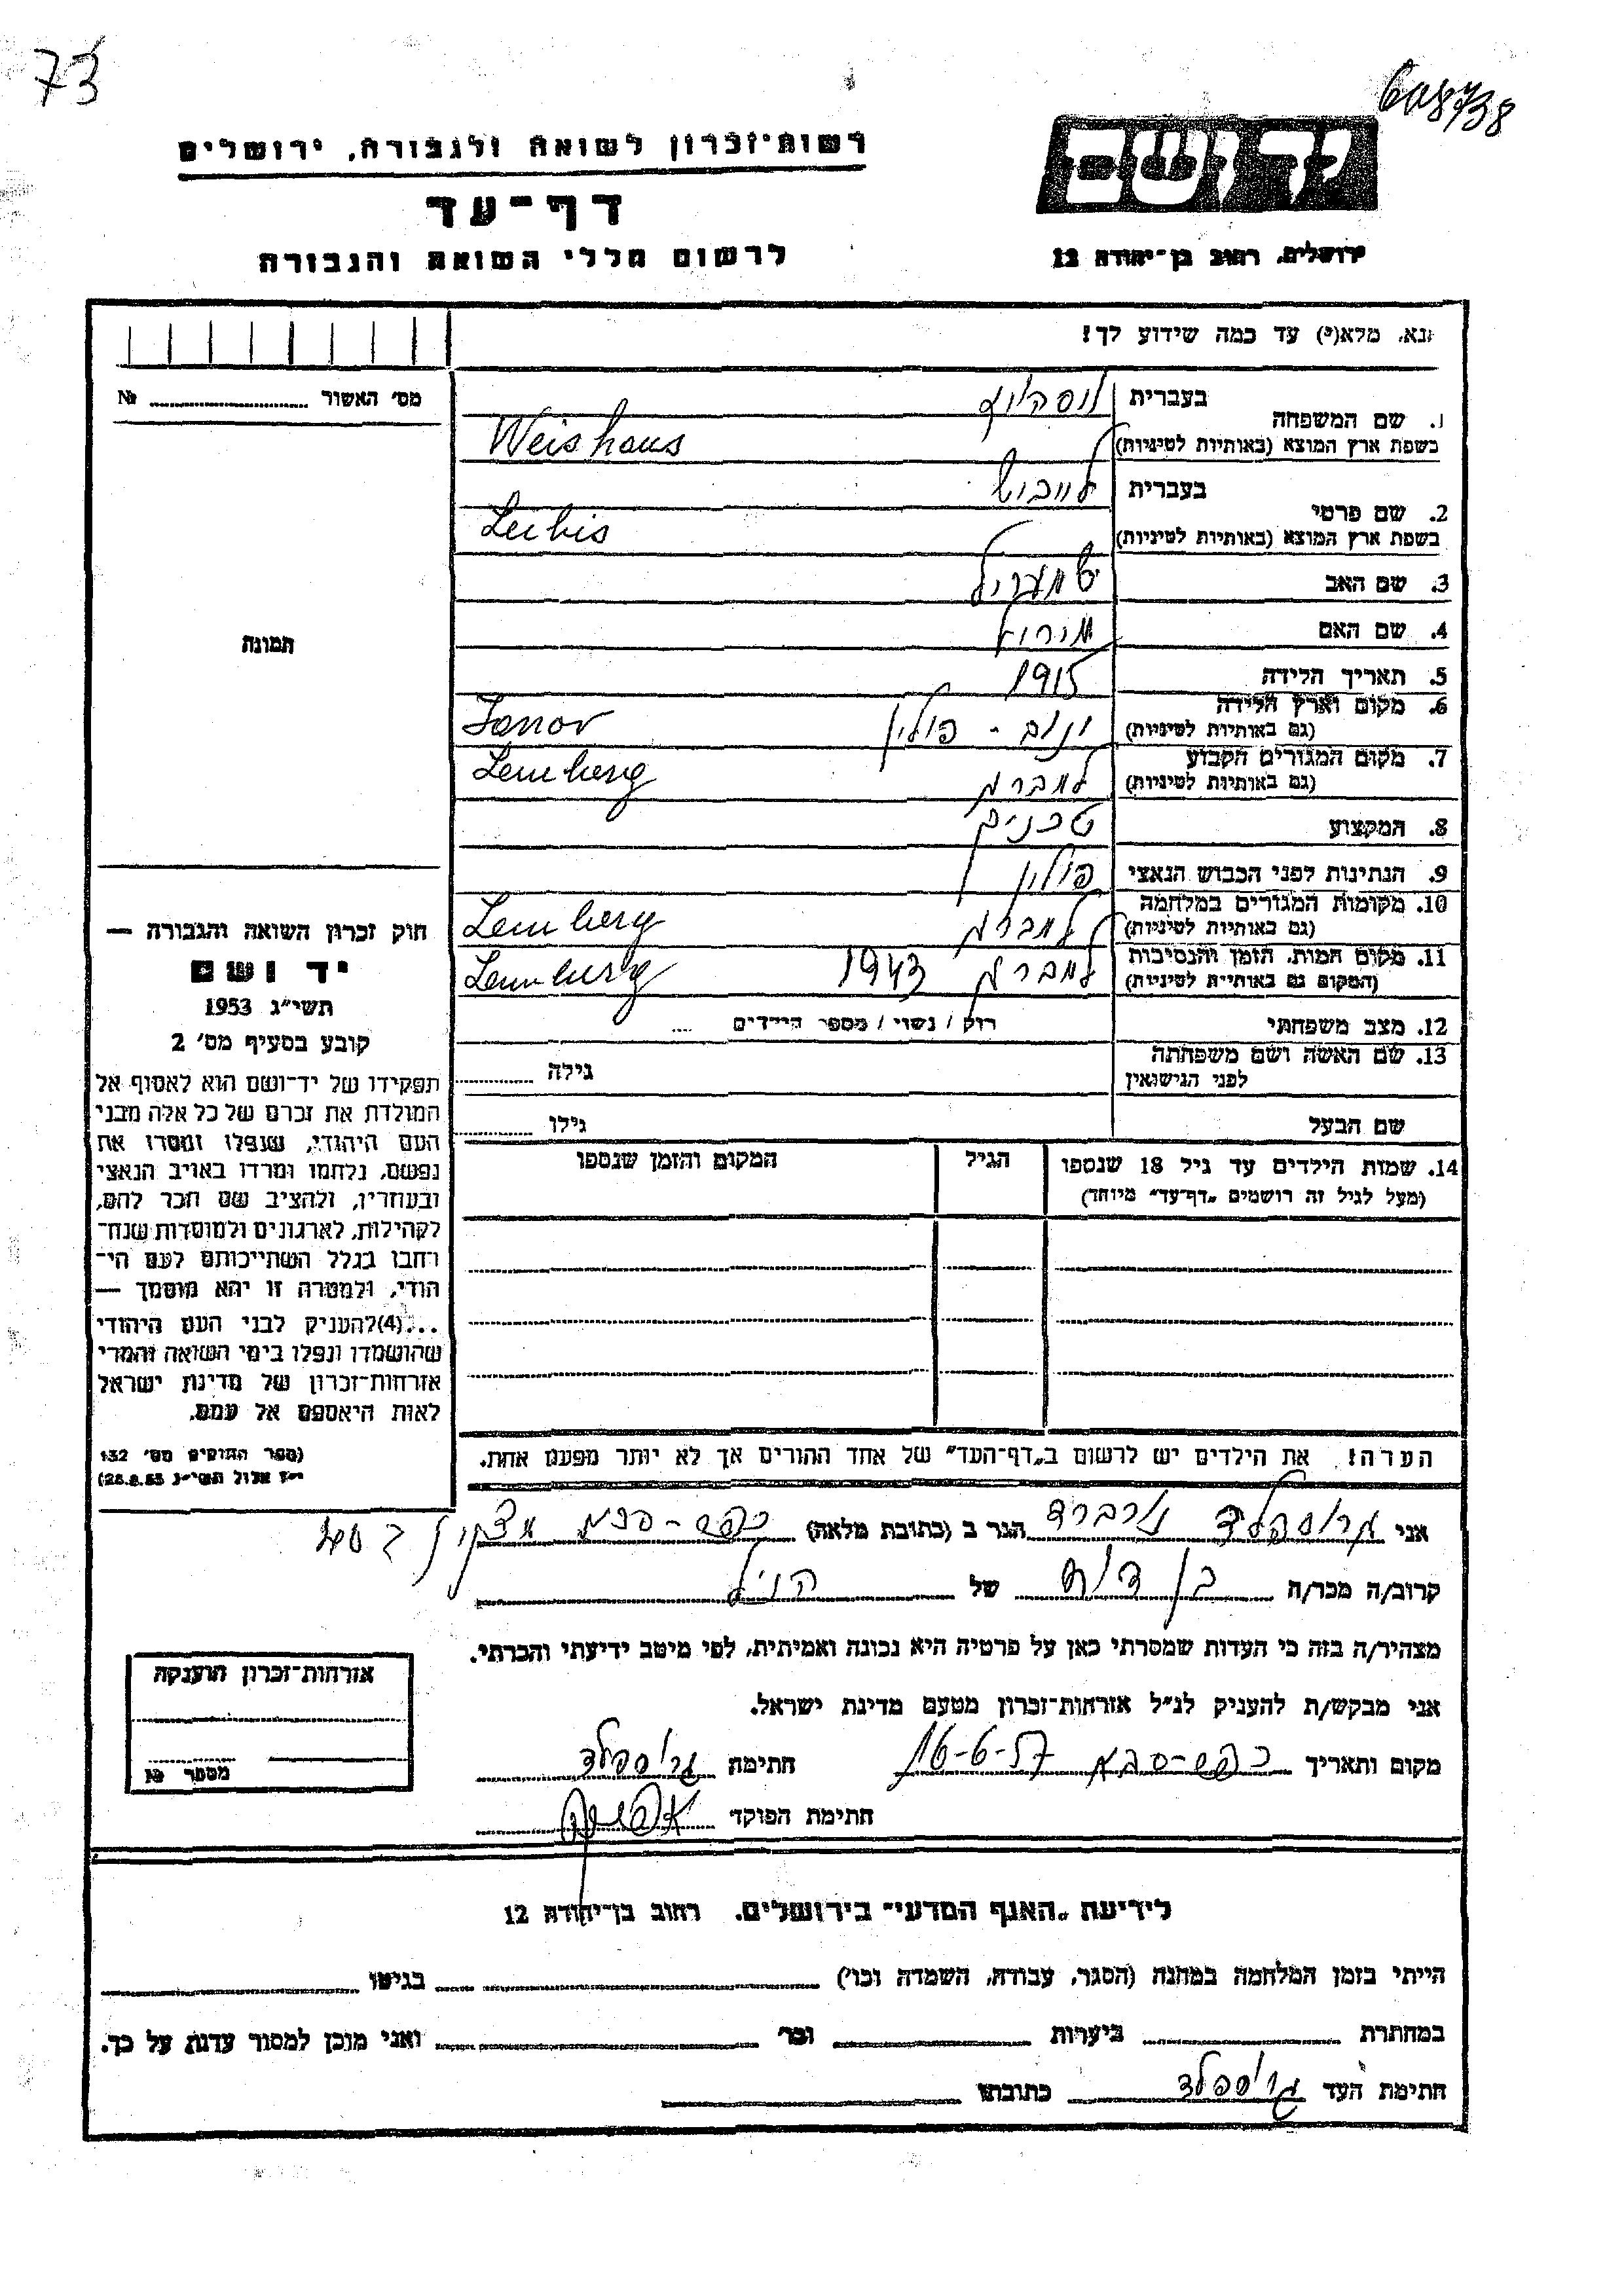 73
רשות־זכרון לשואה ולגבורה, ירושלים
דף־עד
לרשום חללי השואה והגבורה
יד ושם
ירושלים, רחוב בן־יהודה 12
נא, מלא(י) עד כמה שידוע לך!
מס' האשור №
1. שם המשפחה
בעברית
בשפת ארץ המוצא (באותיות לטיניות)
Weishaus
2. שם פרטי
בעברית לייבוש
בשפת ארץ המוצא (באותיות לטיניות)
Leibis
3. שם האב
4. שם האם
5. תאריך הלידה 1915
6. מקום וארץ הלידה
(גם באותיות לטיניות) ינוב - פולין Janov
7. מקום המגורים הקבוע
(גם באותיות לטיניות) למברג Lemberg
8. המקצוע
9. הנתינות לפני הכבוש הנאצי פולין
10. מקומות המגורים במלחמה
(גם באותיות לטיניות) למברג Lemberg
11. מקום המות, הזמן והנסיבות
(המקום גם באותיות לטיניות) למברג 1943 Lemberg
12. מצב משפחתי רוק / נשוי / מספר הילדים ....
13. שם האשה ושם משפחתה
לפני הנישואין
גילה
שם הבעל גילו
14. שמות הילדים עד גיל 18 שנספו
(מעל לגיל זה רושמים „דף־עד" מיוחד)
הגיל
המקום והזמן שנספו
הערה: את הילדים יש לרשום ב„דף־העד" של אחד ההורים אך לא יותר מפעם אחת.
תמונה
חוק זכרון השואה והגבורה —
יד ושם
תשי"ג 1953
קובע בסעיף מס' 2
תפקידו של יד־ושם הוא לאסוף אל
המולדת את זכרם של כל אלה מבני
העם היהודי, שנפלו ומסרו את
נפשם, נלחמו ומרדו באויב הנאצי
ובעוזריו, ולהציב שם וזכר להם,
לקהילות, לארגונים ולמוסדות שנח־
רבו בגלל השתייכותם לעם הי־
הודי, ולמטרה זו יהא מוסמך —
...(4)להעניק לבני העם היהודי
שהושמדו ונפלו בימי השואה והמרי
אזרחות־זכרון של מדינת ישראל
לאות היאספם אל עמם.
(ספר החוקים מס' 132
י"ז אלול תשי"ג 28.8.53)
אני הגר ב (כתובת מלאה) כפר-סבא
קרוב/ה מכר/ה בן דוד של הנ"ל
מצהיר/ה בזה כי העדות שמסרתי כאן על פרטיה היא נכונה ואמיתית, לפי מיטב ידיעתי והכרתי.
אני מבקש/ת להעניק לנ"ל אזרחות־זכרון מטעם מדינת ישראל.
מקום ותאריך כפר-סבא 16-6-57 חתימה
חתימת הפוקד
אזרחות־זכרון הוענקה
מספר №
לידיעת „האגף המדעי" בירושלים. רחוב בן־יהודה 12
הייתי בזמן המלחמה במחנה (הסגר, עבודה, השמדה וכו') בגיטו
במחתרת ביערות וכו' ואני מוכן למסור עדות על כך.
חתימת העד כתובתו